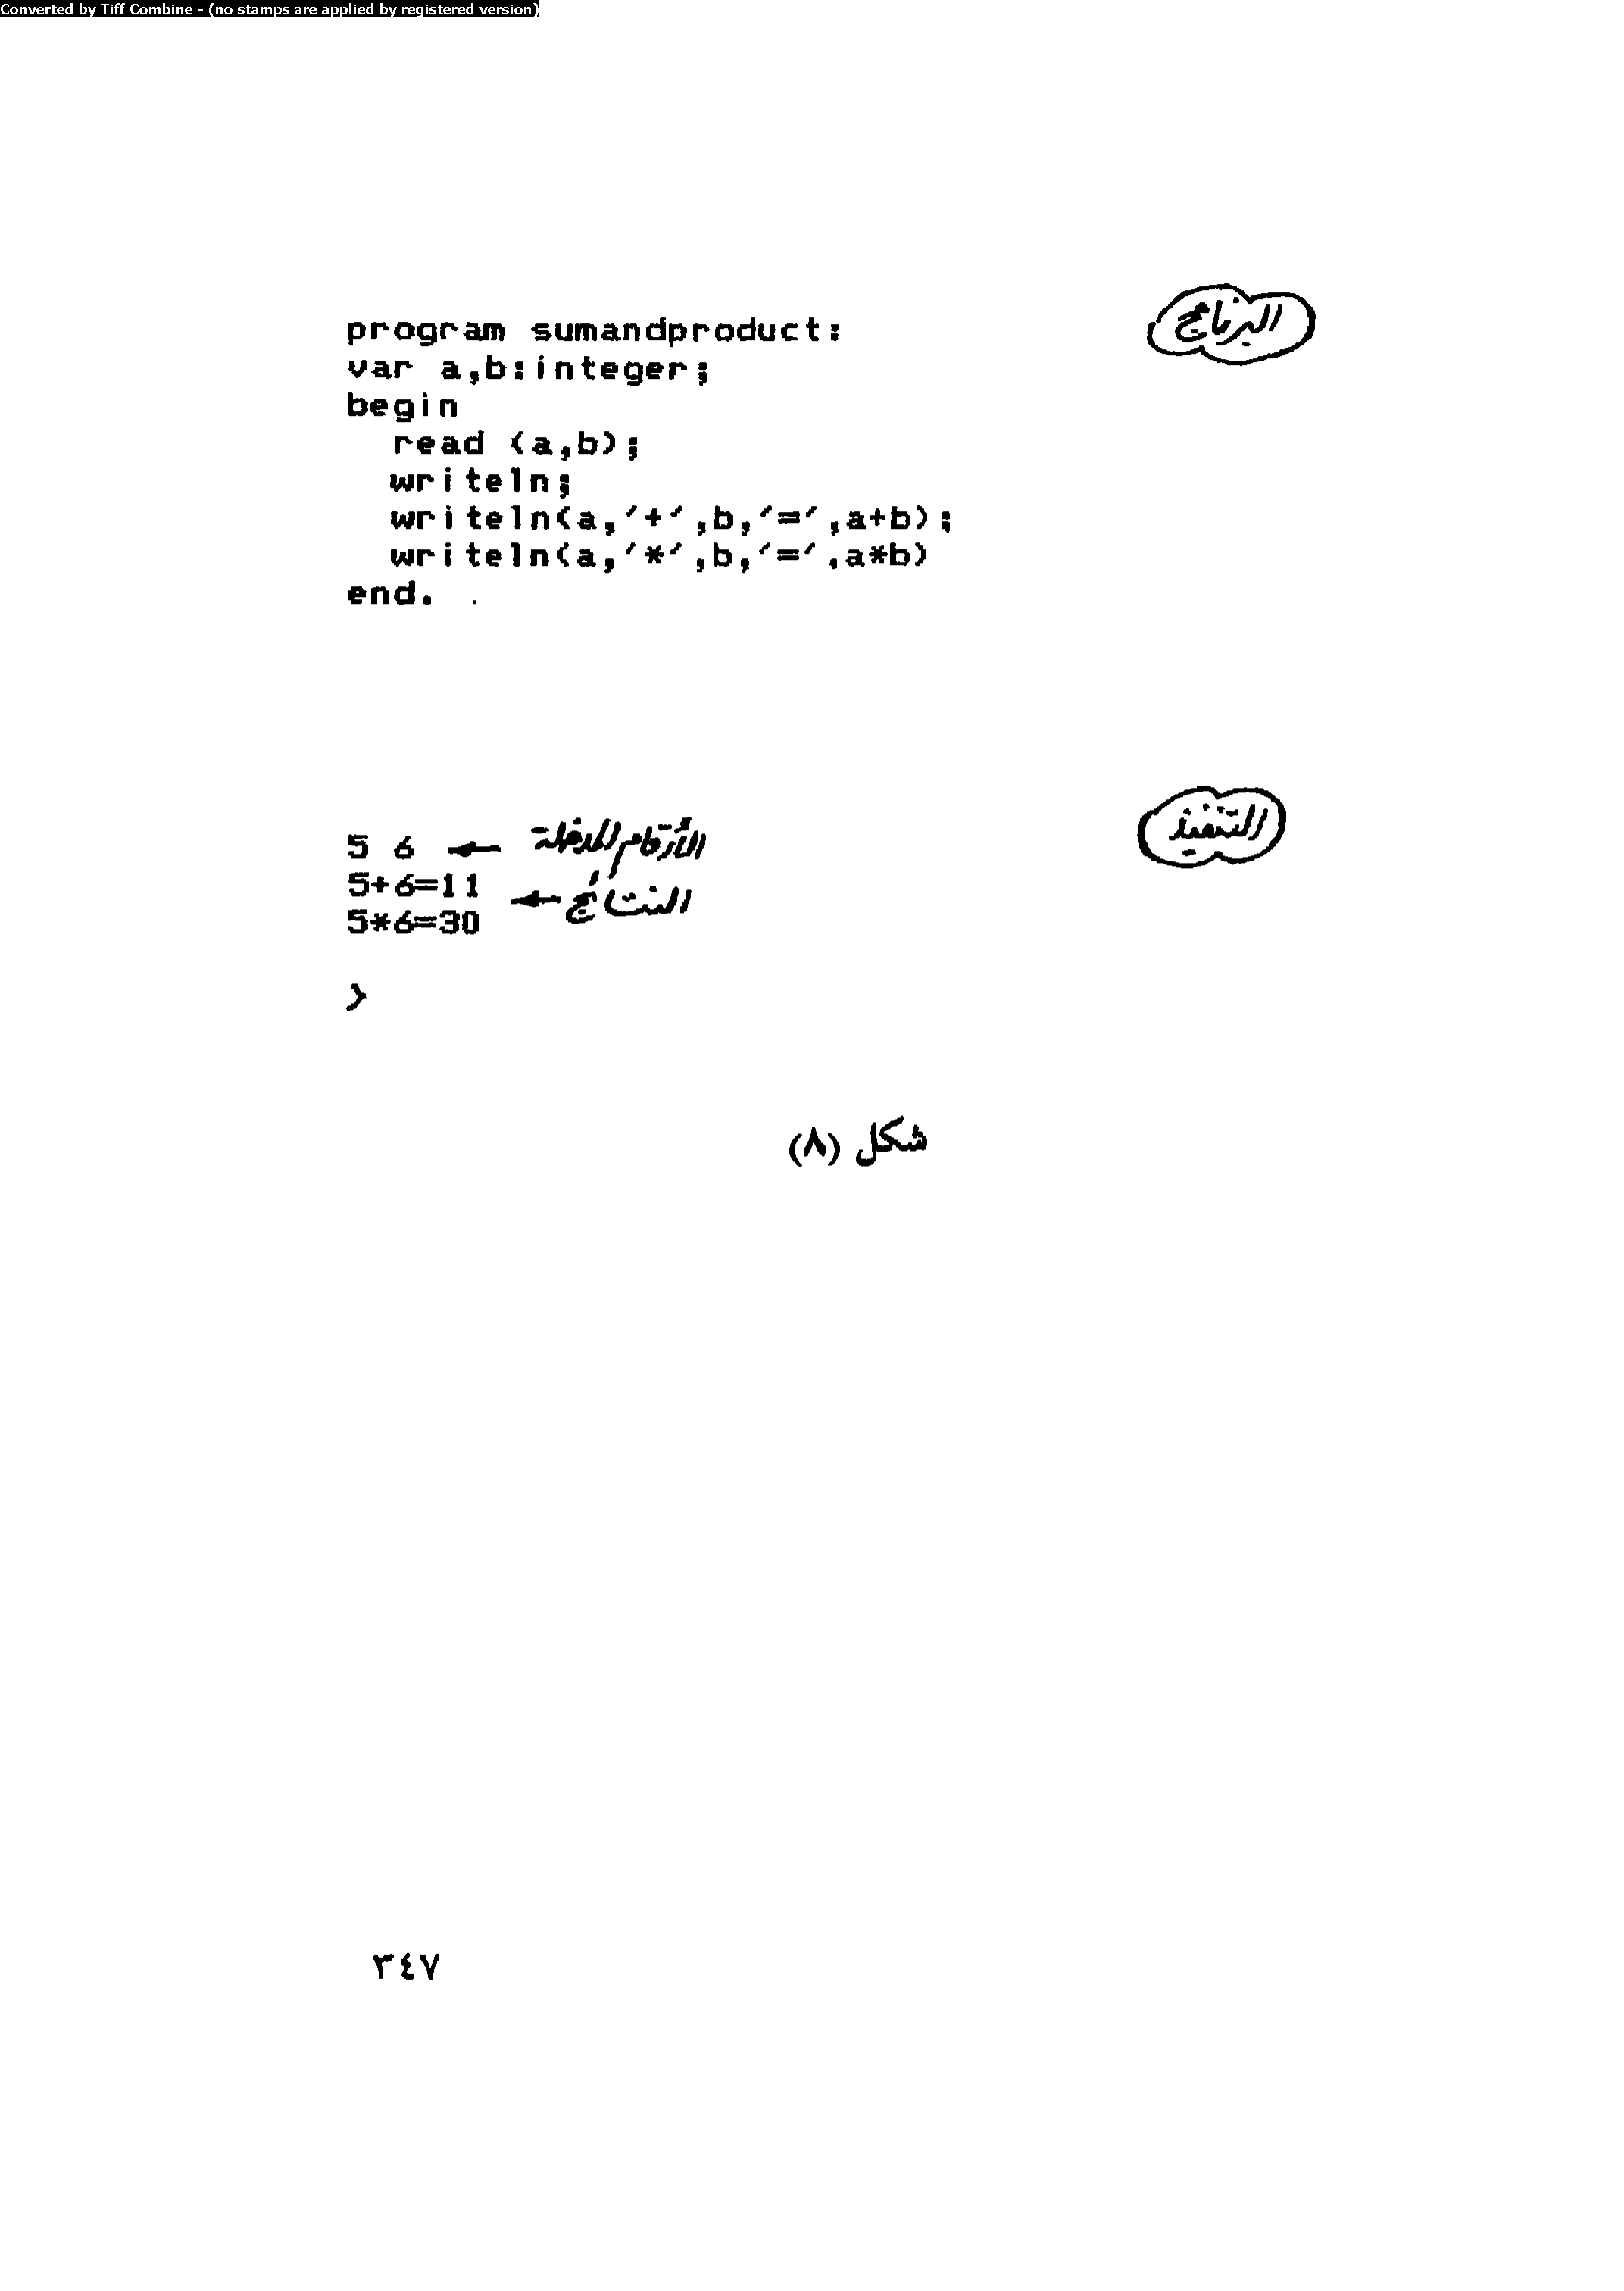 Converted by Tiff Combine - (no stamps are applied by registered version)
البرنامج
program sumandproduct:
var a,b:integer;
begin
read (a,b);
writeln;
writeln(a,'+',b,'=',a+b);
writeln(a,'*',b,'=',a*b)
end.
التنفيذ
5 6 ← الأرقام المدخلة
5+6=11
← النتائج
5*6=30
>
شكل (٨)
٣٤٧